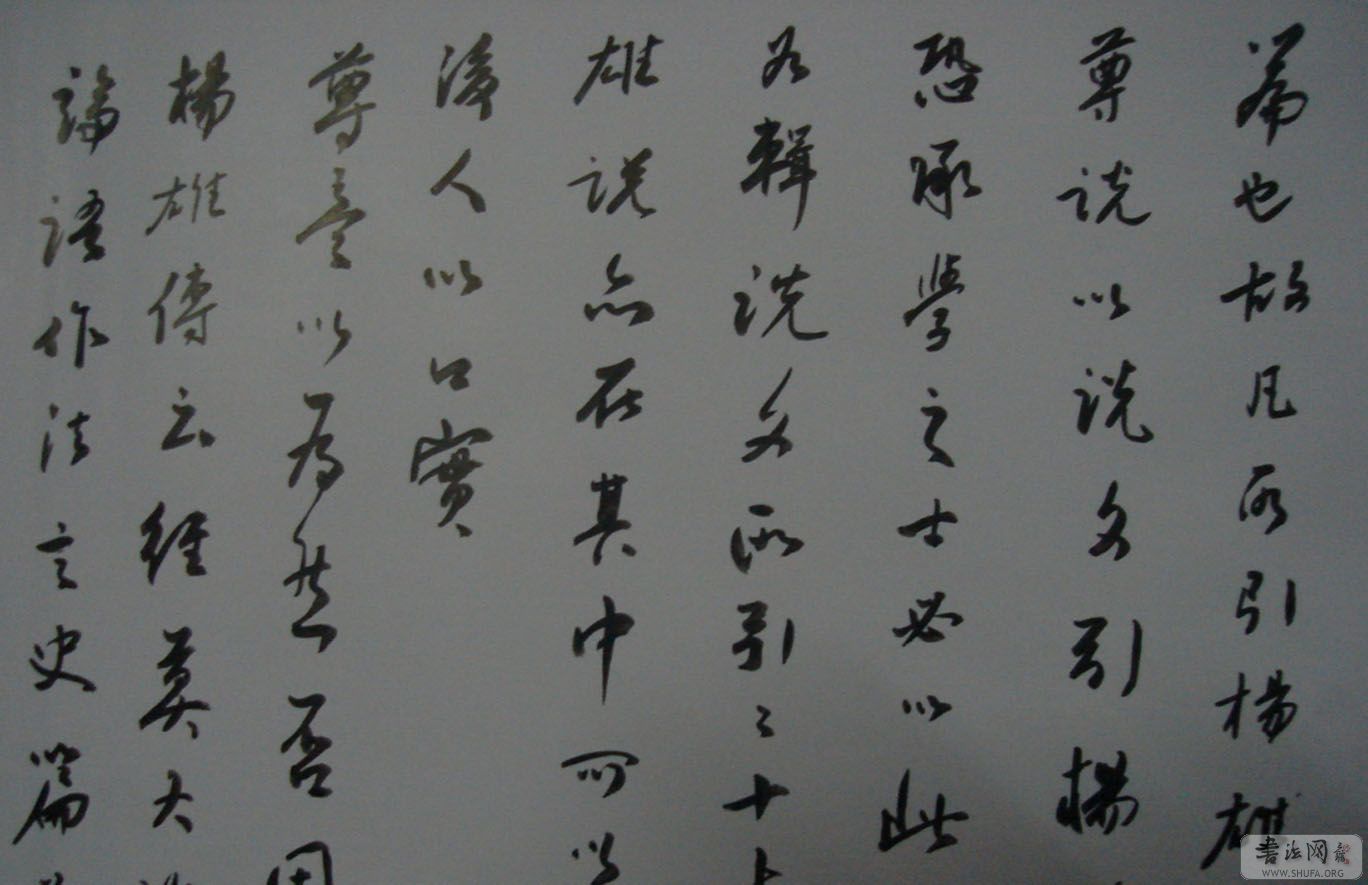 篇也故凡所引楊雄
尊說以說文引楊
恐承學之士必以此
為輯說文所引二十
雄說亦在其中可以
後人以口實
尊意以為然否
楊雄傳云經莫大
論語作法言史篇
書法网
WWW.SHUFA.ORG